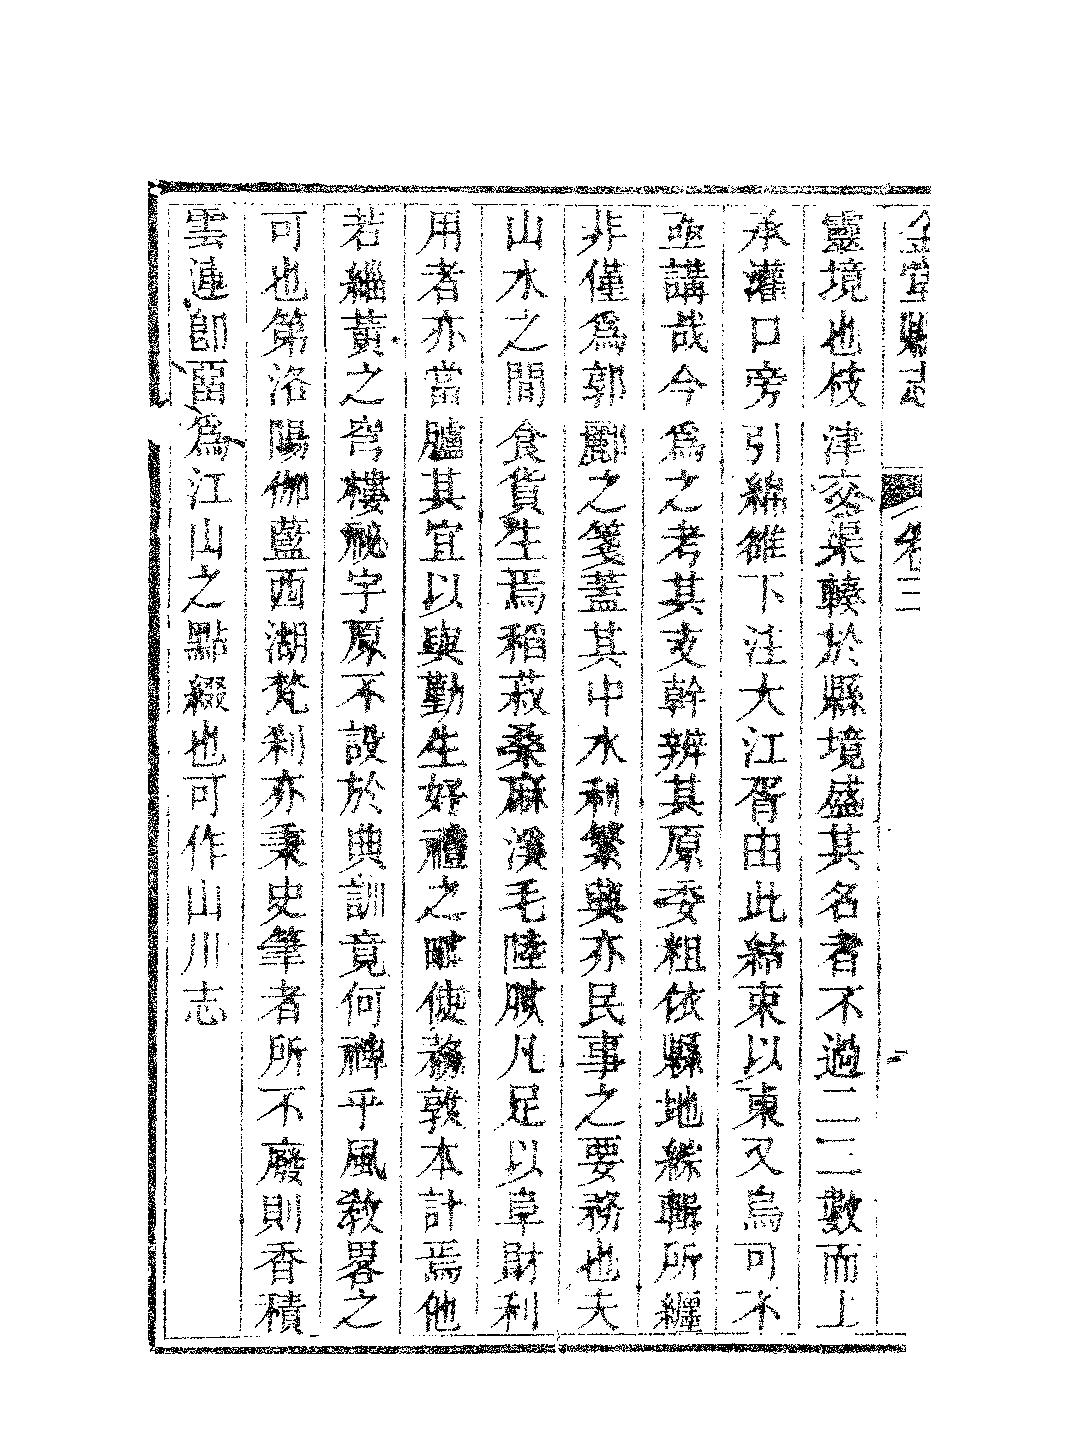 金堂縣志 卷三
靈境也枝津交渠轇於縣境盛其名者不過二三數而上
承灌口旁引綿雒下注大江胥由此締束以東又烏可不
亟講哉今為之考其支幹辨其原委粗依縣地綜輯所纏
非僅為郭酈之箋蓋其中水利繁興亦民事之要務也夫
山水之間食貨生焉稻菽桑麻溪毛陸膩凡足以阜財利
用者亦當臚其宜以與勤生好禮之疇使務敦本計焉他
若緇黃之窅樓祕宇原不設於典訓竟何裨乎風教畧之
可也第洛陽伽藍西湖梵刹亦秉史筆者所不廢則香積
雲連卽謂為江山之點綴也可作山川志